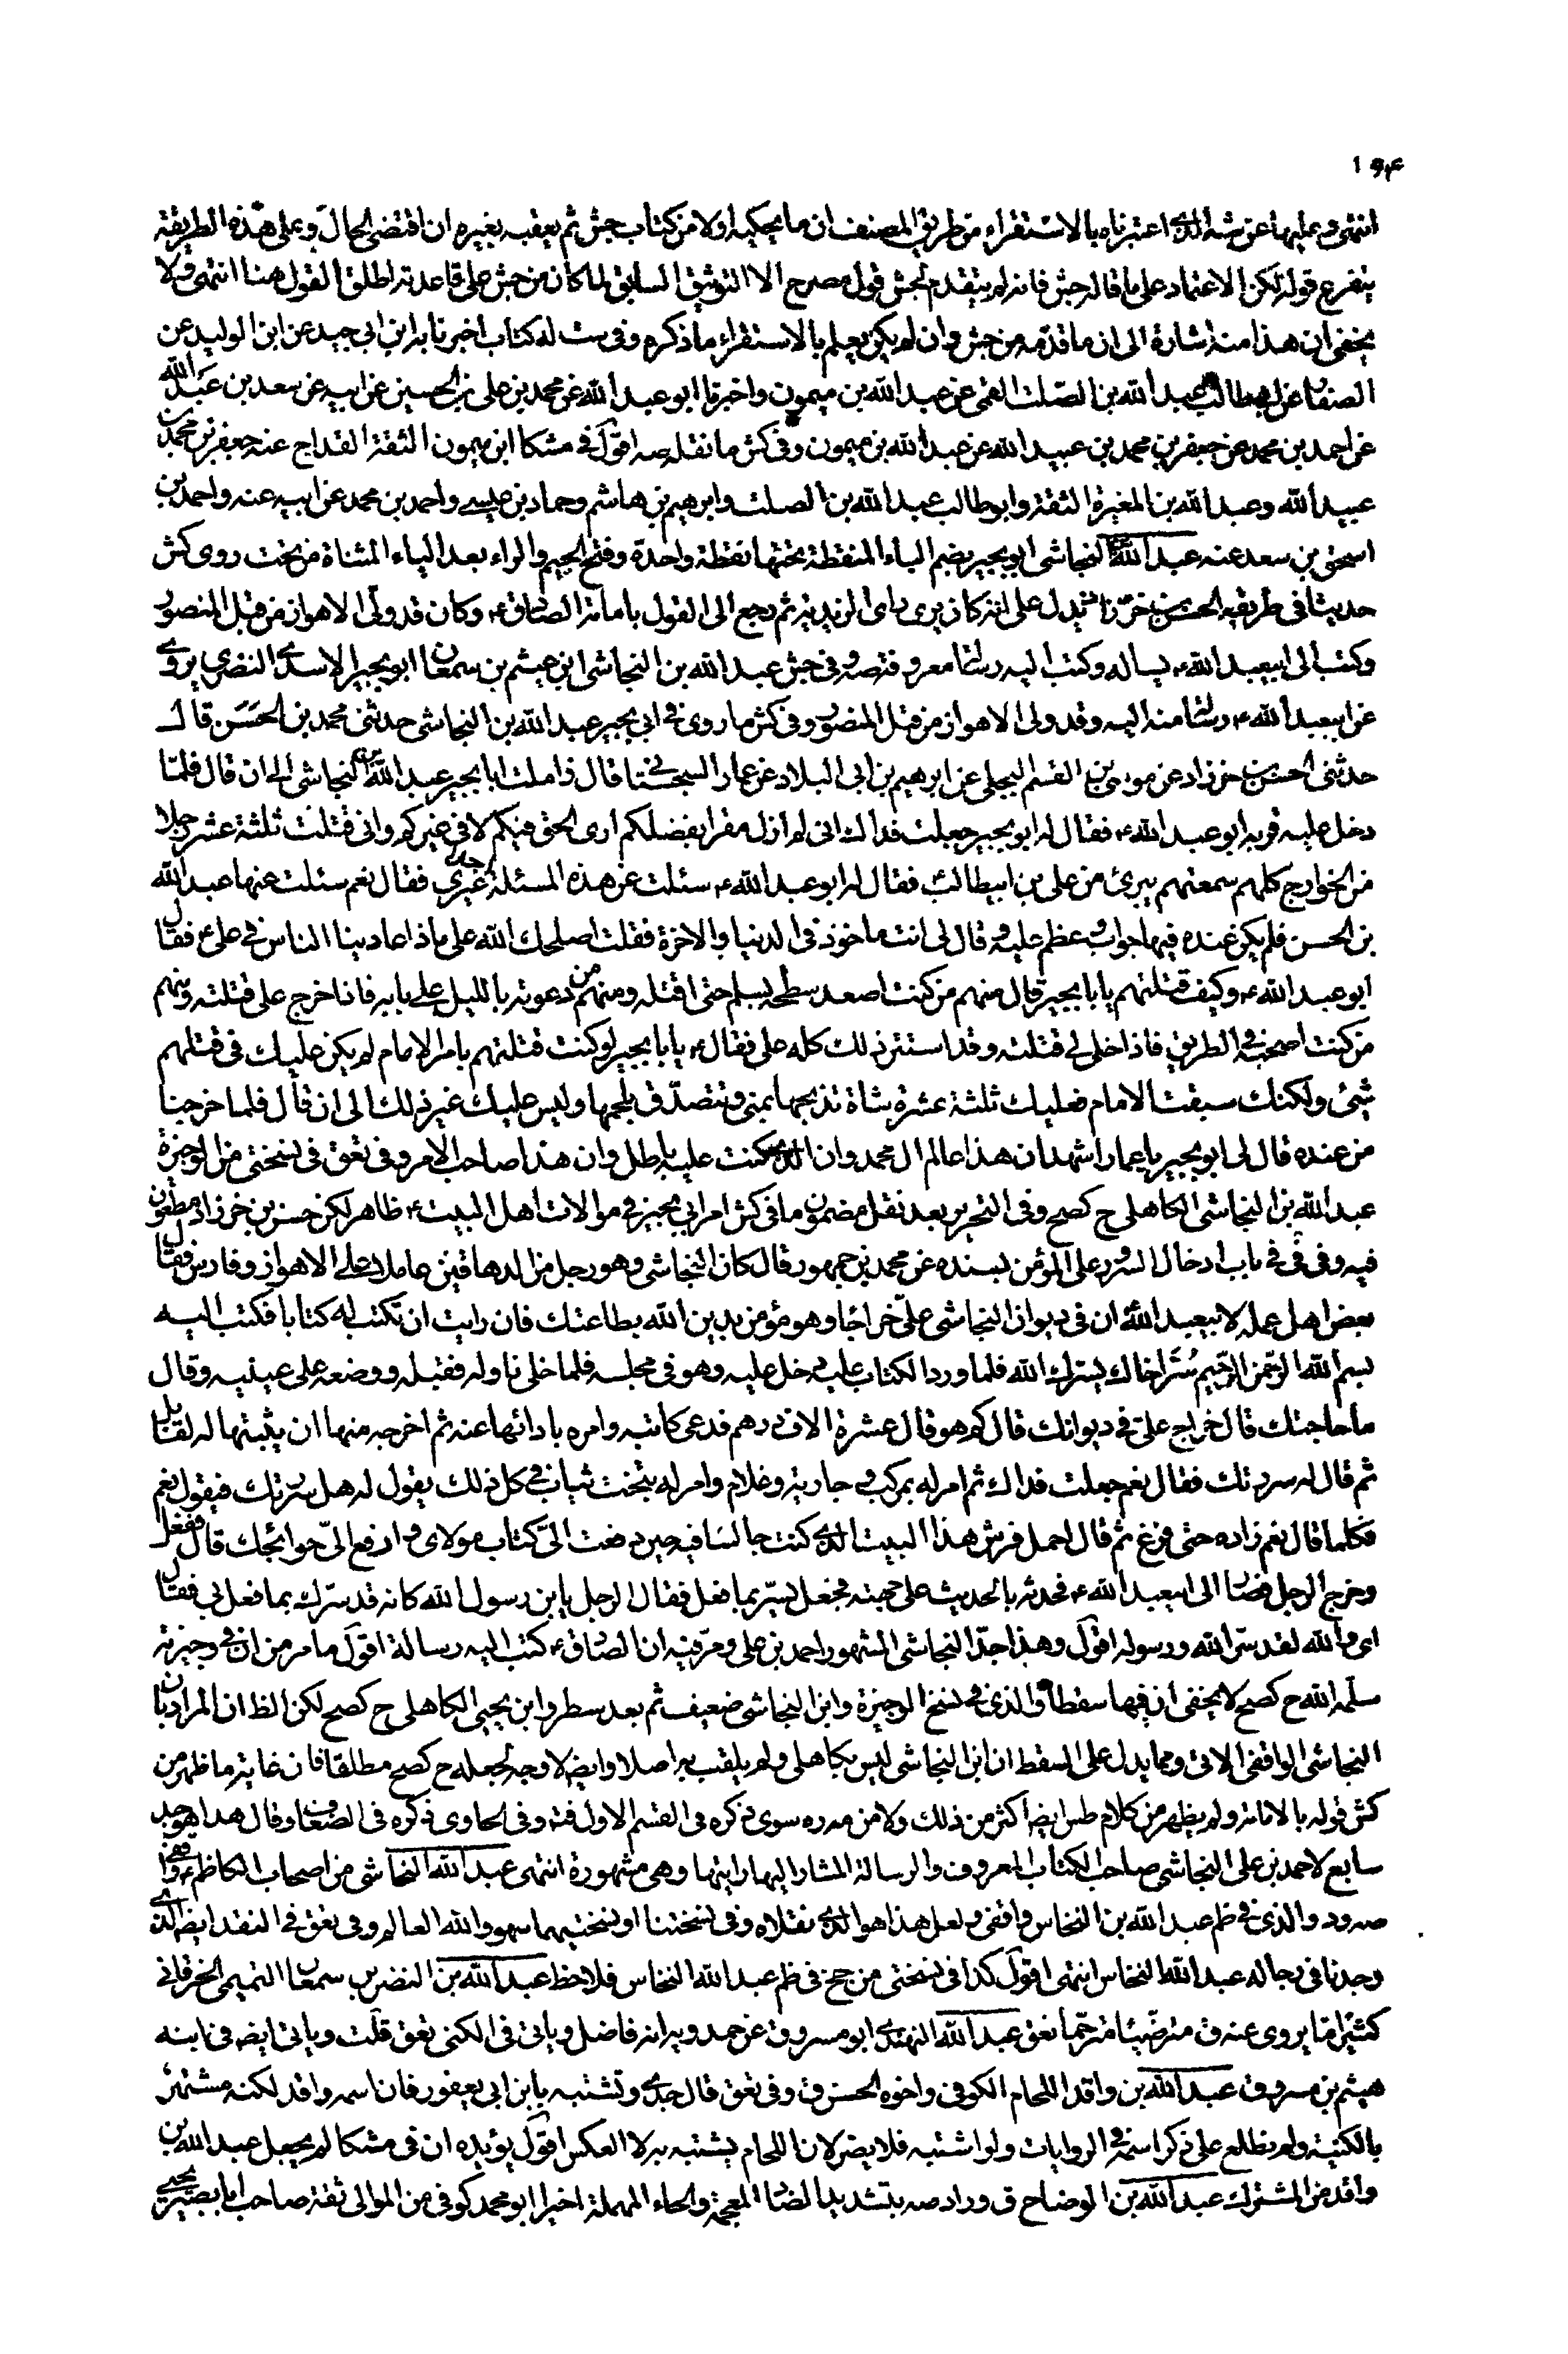 ١٩٤
انتهى وعليها عن شه الذي اعتبرناه بالاستقراء من طريق المصنف ان ما يحكيه اولا من كتاب جش ثم يعقبه بغيره ان اقتضى الحال وعلى هذه الطريقة
يتفرع قوله لكن الاعتماد على ما قاله جش فانه لم يتقدم لجش قول مصرح الا التوثيق السابق لما كان من جش على قاعدته اطلق القول هنا انتهى ولا
يخفى ان هذا منه اشارة الى ان ما قدمه من جش وان لم يكن يعلم بالاستقراء ما ذكره وفى ست له كتاب اخبرنا به ابن ابى جيد عن ابن الوليد عن
الصفار عن ابيطالب عبد الله بن الصلت القمى عن عبد الله بن ميمون واخبرنا ابو عبد الله عن محمد بن على بن الحسين عن ابيه عن سعد بن عبد الله
عن احمد بن محمد عن جعفر بن محمد بن عبيد الله عن عبد الله بن ميمون وفى كش ما نقله صه اقول فى مشكا ابن ميمون الثقة القداح عنه جعفر بن محمد بن
عبيد الله وعبد الله بن المغيرة الثقة وابو طالب عبد الله بن الصلت وابرهيم بن هاشم وحماد بن عيسى واحمد بن محمد عن ابيه عنه واحمد بن
اسحق بن سعد عنه عبد الله النجاشى ابو بجير بضم الباء المنقطة تحتها نقطة واحدة وفتح الجيم والراء بعد الياء المثناة من تحت روى كش
حديثا فى طريقه الحسن بن خرزاد يدل على انه كان يرى راى الزيدية ثم رجع الى القول بامامة الصادق ع وكان قد ولى الاهواز من قبل المنصور
وكتب الى ابيعبد الله ع يساله وكتب اليه رسالة معروفة صه وفى جش عبد الله بن النجاشى ابن عيثم بن سمعان ابو بجير الاسدى النضرى يروى
عن ابيعبد الله ع رسالة منه اليه وقد ولى الاهواز من قبل المنصور وفى كش ما روى فى ابى بجير عبد الله بن النجاشى حدثنى محمد بن الحسن قال
حدثنى الحسن بن خرزاد عن موسى بن القسم البجلى عن ابرهيم بن ابى البلاد عن عمار السجستانى قال زاملت ابا بجير عبد الله بن النجاشى الى ان قال فلما
دخل عليه قربه ابو عبد الله ع فقال له ابو بجير جعلت فداك انى لم ازل مقرا بفضلكم ارى الحق فيكم لا فى غيركم وانى قتلت ثلثة عشر رجلا
من الخوارج كلهم سمعتهم يبرئ من على بن ابيطالب فقال له ابو عبد الله ع سئلت عن هذه المسئلة احدا غيرى فقال نعم سئلت عنها عبد الله
بن الحسن فلم يكن عنده فيها جواب وعظم عليه وقال لى انت ماخوذ فى الدنيا والاخرة فقلت اصلحك الله على ماذا عادينا الناس فى على ع فقال
ابو عبد الله ع وكيف قتلتهم يا بابجير قال منهم من كنت اصعد سطحه بسلم حتى اقتله ومنهم من دعوته بالليل على بابه فاذا خرج على قتلته ومنهم
من كنت اصحبه فى الطريق فاذا خلى لى قتلته وقد استتر ذلك كله على فقال ع يا بابجير لو كنت قتلتهم بامر الامام لم يكن عليك فى قتلهم
شئ ولكنك سبقت الامام فعليك ثلثة عشرة شاة تذبحها بمنى وتتصدق بلحمها وليس عليك غير ذلك الى ان قال فلما خرجنا
من عنده قال لى ابو بجير يا عمار اشهد ان هذا عالم ال محمد وان الذى كنت عليه باطل وان هذا صاحب الامر وفى تعق فى نسختى من الوجيزة
عبد الله بن النجاشى الكاهلى ح كصح وفى التحرير بعد نقل مضمون ما فى كش امر ابى بجير فى موالات اهل البيت ع ظاهر لكن حسن بن خرزاد مطعون
فيه وفى فى فى باب ادخال السرور على المؤمن بسنده عن محمد بن جمهور قال كان النجاشى وهو رجل من الدهاقين عاملا على الاهواز وفارس فقال
بعض اهل عمله لابيعبد الله ان فى ديوان النجاشى على خراجا وهو مؤمن يدين الله بطاعتك فان رايت ان تكتب له كتابا فكتب اليه
بسم الله الرحمن الرحيم سر اخاك يسرك الله فلما ورد الكتاب عليه دخل عليه وهو فى مجلسه فلما خلى ناوله فقبله ووضعه على عينيه وقال
ما حاجتك قال خراج على فى ديوانك قال كم هو قال عشرة الاف درهم فدعى كاتبه وامره بادائها عنه ثم اخرجه منها ان يثبتها له لقابل
ثم قال له سررتك فقال نعم جعلت فداك ثم امر له بمركب وجارية وغلام وامر له بتخت ثياب فى كل ذلك يقول له هل سررتك فيقول نعم
فكلما قال نعم زاده حتى فرغ ثم قال احمل فرش هذا البيت الذى كنت جالسا فيه حين دفعت الى كتاب مولاى وارفع الى حوائجك قال ففعل
وخرج الرجل فصار الى ابيعبد الله ع فحدثه بالحديث على جهته فجعل يسر بما فعل فقال الرجل يابن رسول الله كانه قد سرك بما فعل بى فقال
اى والله لقد سر الله ورسوله اقول وهذا جد النجاشى المشهور احمد بن على ومر فيه ان الصادق ع كتب اليه رسالة اقول ما مر من ان فى وجيزته
سلمه الله ح كصح لا يخفى ان فيها سقطا والذى فى نسخ الوجيزة وابن النجاشى ضعيف ثم بعد سطر وابن يحيى الكاهلى ح كصح لكن الظ ان المراد بابن
النجاشى الواقفى الاتى ومما يدل على السقط ان ابن النجاشى ليس بكاهلى ولم يلقب به اصلا وايضا لا وجه لجعله ح كصح مطلقا فان غاية ما ظهر من
كش قوله بالامامة ولم يظهر من كلام طس ايضا اكثر من ذلك ولا من صه سوى ذكره فى القسم الاول فت وفى الحاوى ذكره فى الضعاف وقال هذا هو جد
سابع لاحمد بن على النجاشى صاحب الكتاب المعروف والرسالة المشار اليها رايتها وهى مشهورة انتهى عبد الله النجاشى من اصحاب الكاظم ع واقفى
صه ود والذى فى ظم عبد الله بن النخاس واقفى ولعل هذا هو الذى نقلاه وفى نسختنا او نسختيهما سهو والله العالم وفى تعق فى النقد ايضا الذى
وجدنا فى رجاله عبد الله النخاس انتهى اقول كذا فى نسختى من جخ فى ظم عبد الله النخاس فلاحظ عبد الله بن النضر بن سمعان التميمى الخرقانى
كثيرا ما يروى عنه ق مترضيا مترحما تعق عبد الله النهدى ابو مسروق عن حمدويه انه فاضل وياتى فى الكنى تعق قلت وياتى ايضا فى ابنه
هيثم بن مسروق عبد الله بن واقد اللحام الكوفى واخوه الحسن ق وفى تعق قال جدى وتشتبه بابن ابى يعفور فان اسمه واقد لكنه مشتهر
بالكنية ولم نطلع على ذكر اسمه فى الروايات ولو اشتبه فلا يضر لان اللحام يشتبه به لا العكس اقول يؤيده ان فى مشكا لم يجعل عبد الله بن
واقد من المشترك عبد الله بن الوضاح ق وزاد صه بتشديد الضاد المعجمة والحاء المهملة اخيرا ابو محمد كوفى من الموالى ثقة صاحب ابا بصير يحيى